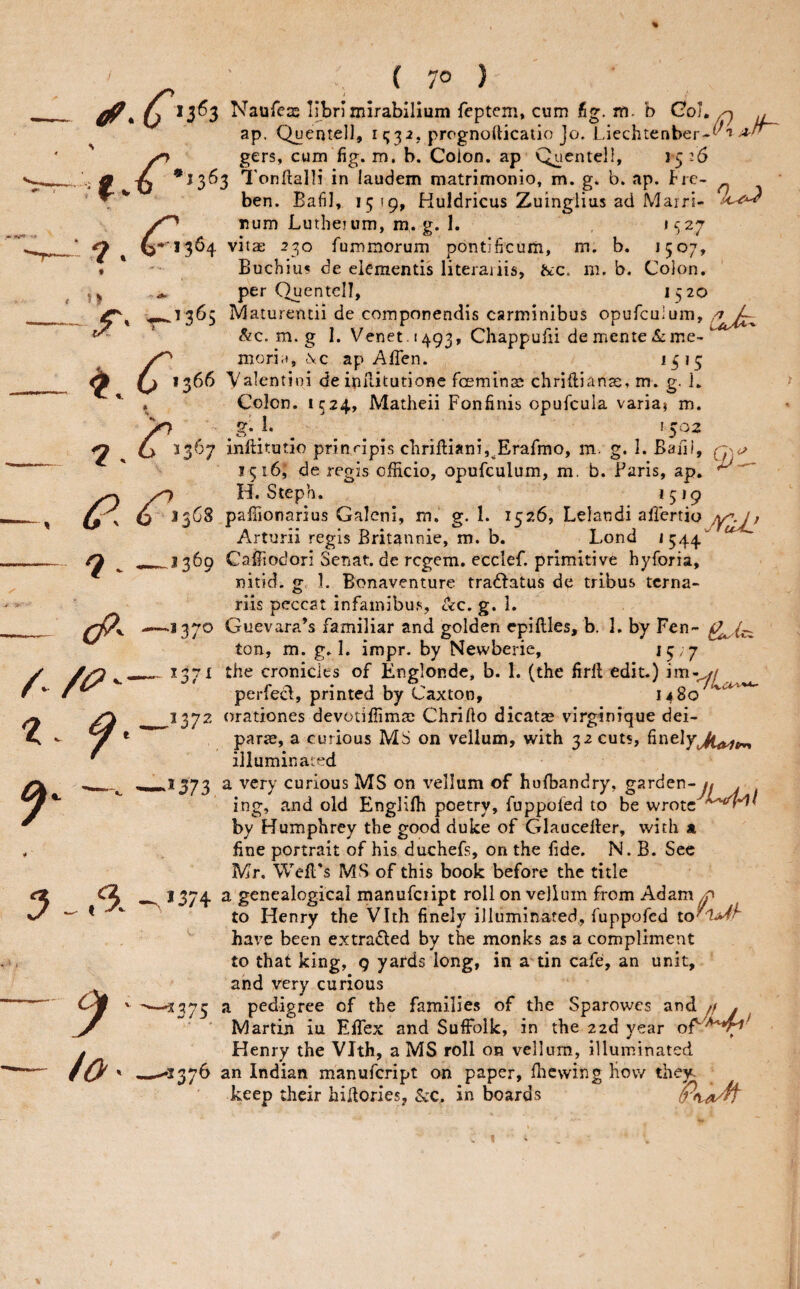 ( 70 )
1363 Naufeæ libri mirabilium feptem, cum fig. m. b Col.
ap. Quentell, 1532, prognofticatio Jo. Liechtenber-
gers, cum fig. m. b. Colon. ap Quentell, 1526
*1363 Tonftalli in laudem matrimonio, m. g. b. ap. Fro-
ben. Bafil, 1519, Huldricus Zuinglius ad Marri-
num Lutherum, m. g. l. 1527
1364 vitæ 230 fummorum pontificum, m. b. 1507,
Buchius de elementis literariis, &c. m. b. Colon.
per Quentell, 1520
1365 Maturentii de componendis carminibus opufculum,
&c. m. g l. Venet. 1493, Chappufii de mente & me-
moria, &c ap Affen. 1515
1366 Valentini de inftitutione fœminæ chriftianæ, m. g. l.
Colon. 1524, Matheii Fonfinis opufcula varia, m.
g. l. 1502
1367 inftitutio principis chriftiani, Erafmo, m. g. l. Bafil,
1516, de regis officio, opufculum, m. b. Paris, ap.
H. Steph. 1519
1368 paffionarius Galeni, m. g. l. 1526, Lelandi affertio
Arturii regis Britannie, m. b. Lond 1544
1369 Caffiodori Senat. de regem. ecclef. primitive hyforia,
nitid. g. l. Bonaventure tractatus de tribus terna-
riis peccat infamibus, &c. g. l.
1370 Guevara's familiar and golden epiftles, b. l. by Fen-
ton, m. g. l. impr. by Newberie, 1577
1371 the cronicles of Englonde, b. l. (the firft edit.) im-
perfect, printed by Caxton, 1480
1372 orationes devotiffimæ Chrifto dicatæ virginique dei-
paræ, a curious MS on vellum, with 32 cuts, finely
illuminated
1373 a very curious MS on vellum of hufbandry, garden-
ing, and old Englifh poetry, fuppofed to be wrote
by Humphrey the good duke of Glaucefter, with a
fine portrait of his duchefs, on the fide. N. B. See
Mr. Weft's MS of this book before the title
1374 a genealogical manufcript roll on vellum from Adam
to Henry the VIth finely illuminated, fuppofed to
have been extracted by the monks as a compliment
to that king, 9 yards long, in a tin cafe, an unit,
and very curious
1375 a pedigree of the families of the Sparowes and
Martin iu Effex and Suffolk, in the 22d year of
Henry the VIth, a MS roll on vellum, illuminated
1376 an Indian manufcript on paper, fhewing how they
keep their hiftories, &c. in boards